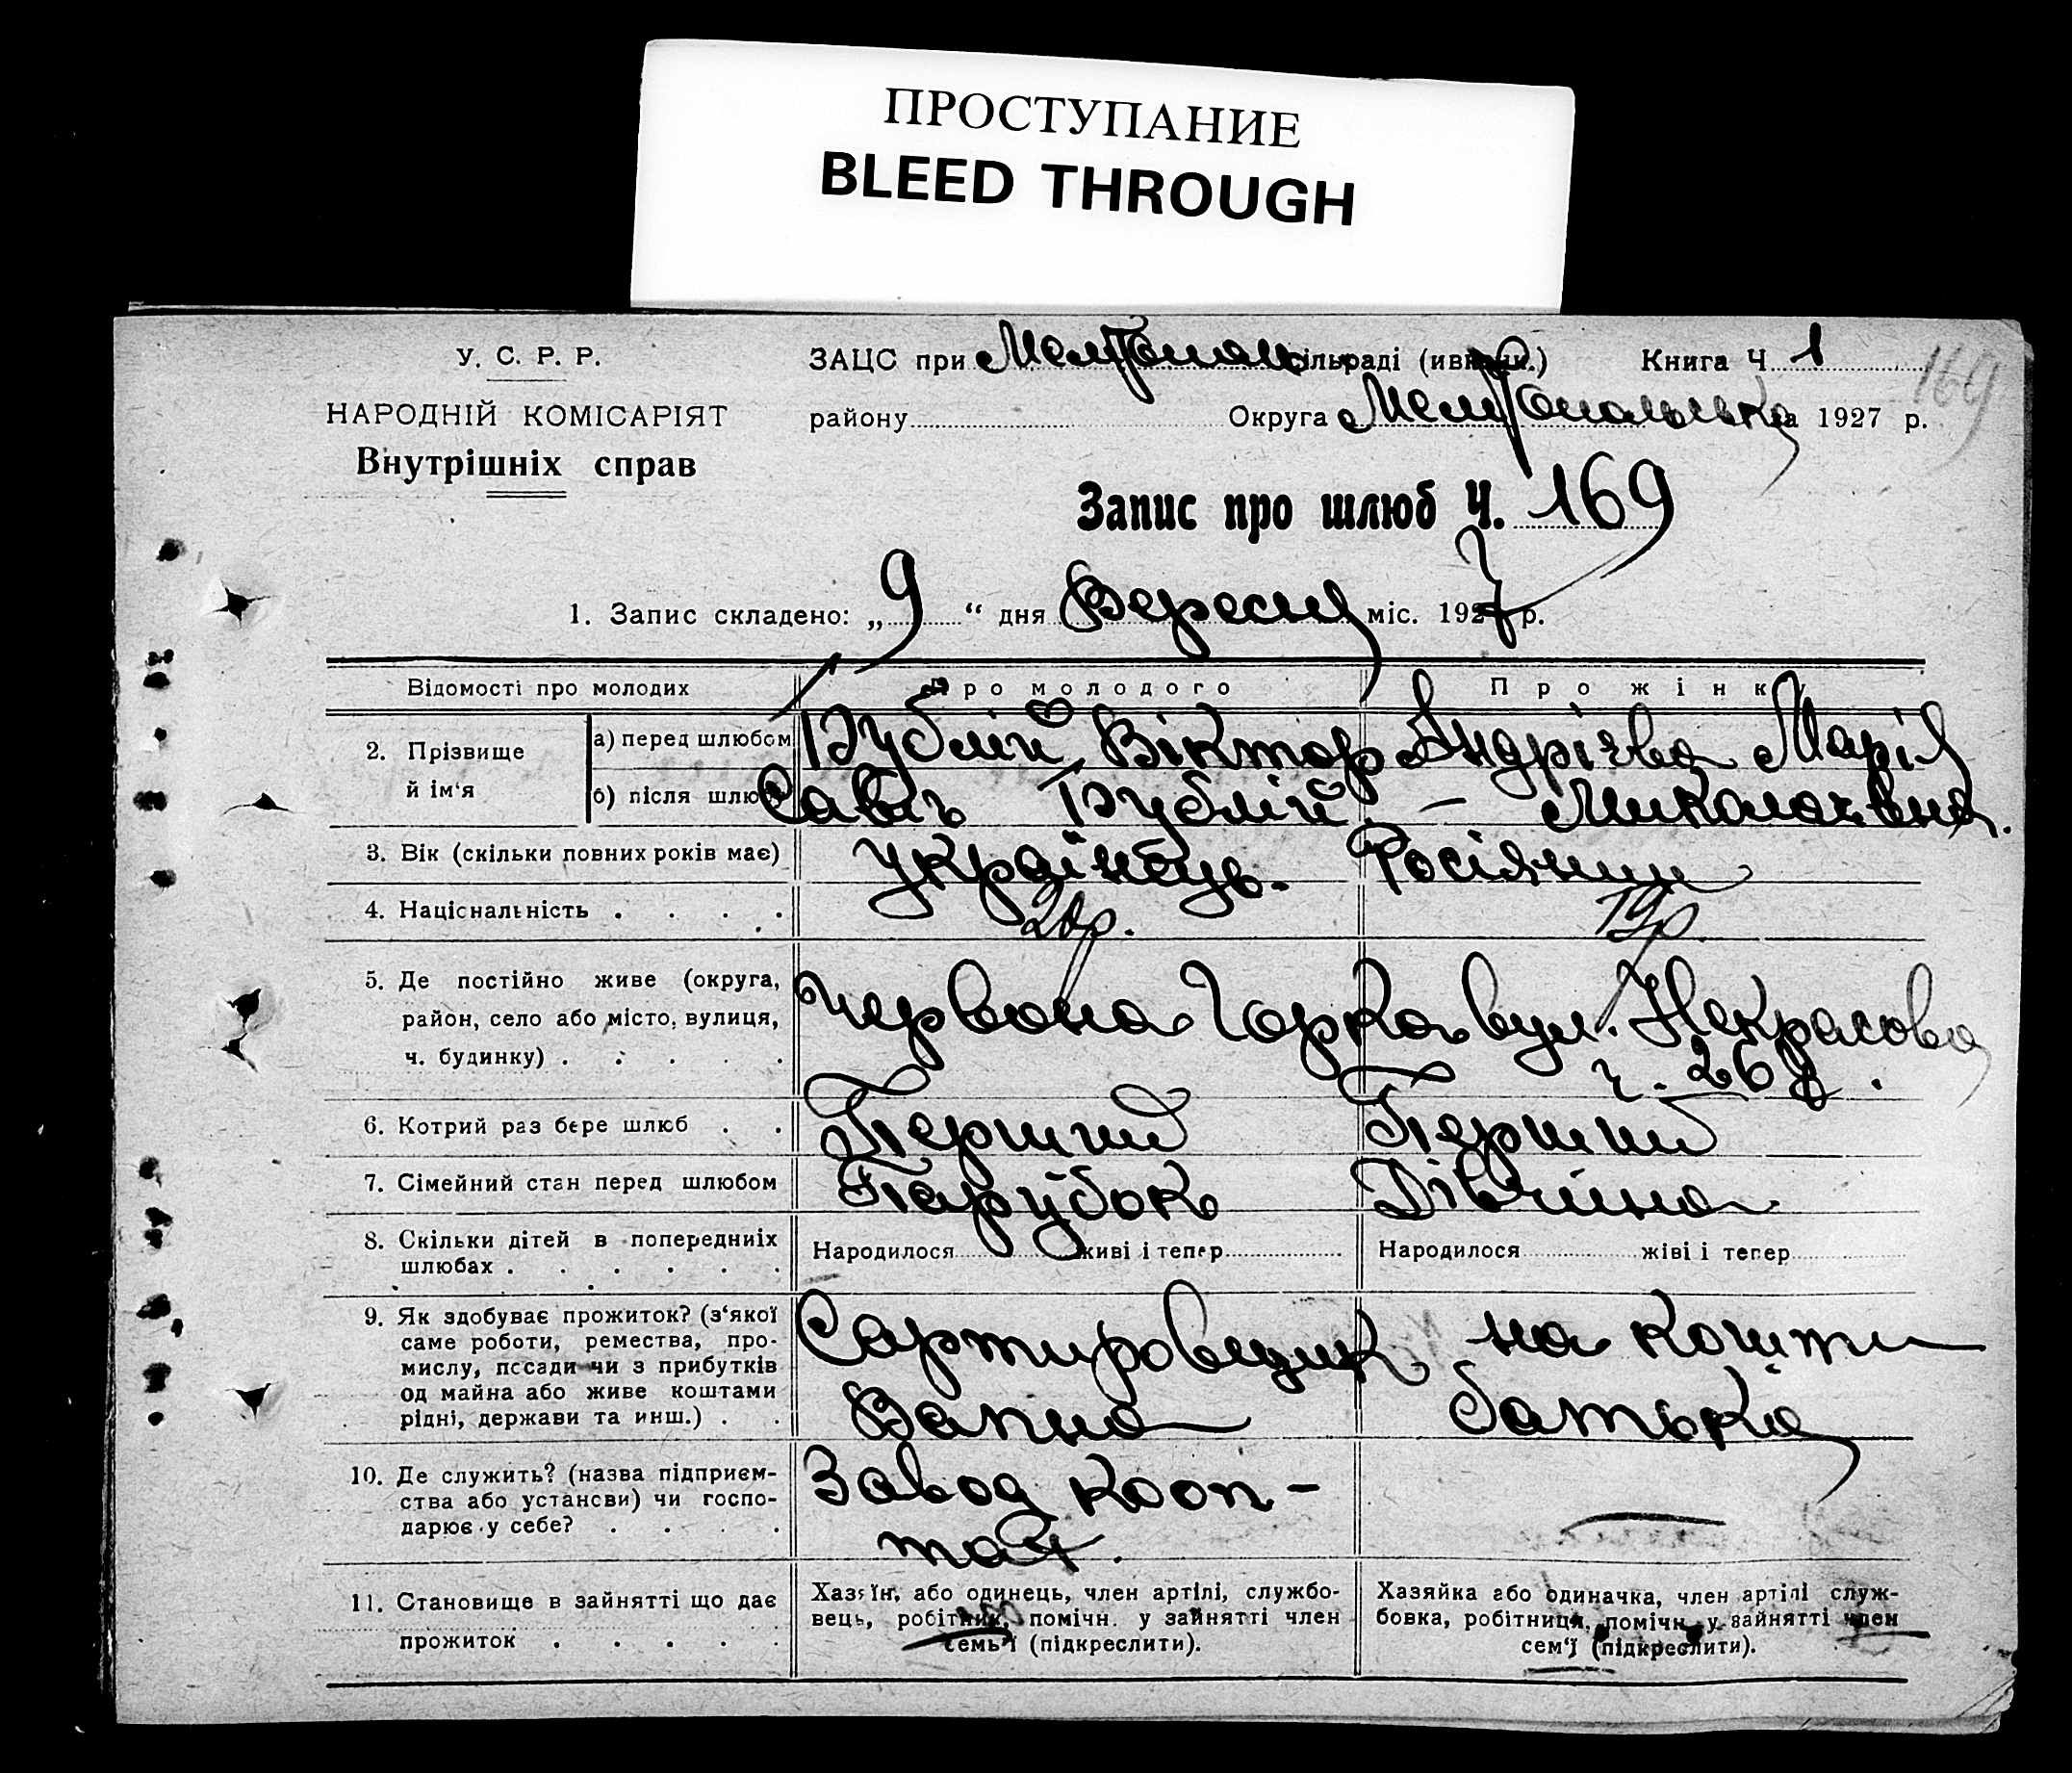 ПРОСТУПАНИЕ
BLEED THROUGH
У. С. Р. Р.
НАРОДНІЙ КОМІСАРІЯТ
Внутрішніх справ
ЗАЦС при сільраді Книга Ч 1
169
району Округа Мелітопольська на 1927 р.
Запис про шлюб Ч. 169
1. Запис складено: „9“ дня Вересня міс. 1927 р.
Відомості про молодих
Про молодого
Про жінку
2. Прізвище й ім‘я
а) перед шлюбом
Віктор
Марія
б) після шлюбу
Миколаєвна.
3. Вік (скільки повних років має)
Українець.
Росіянин
4. Націснальність
20р.
19р.
5. Де постійно живе (округа,
район, село або місто, вулиця,
ч. будинку)
Червона Горка вул. Некрасова
ч. 26
6. Котрий раз бере шлюб
Перший
Перший
7. Сімейний стан перед шлюбом
Парубок
Дівчина
8. Скільки дітей в попередниіх
шлюбах
Народилося живі і тепер
Народилося жіві і тепер
9. Як здобуває прожиток? (з‘якої
саме роботи, ремества, про-
мислу, посади чи з прибутків
од майна або живе коштами
рідні, держави та инш.)
Сартировщик
Вапна
на кошти
батька
10. Де служить? (назва підприєм-
ства або установи) чи госпо-
дарює у себе?
Завод кооп-
11. Становище в зайнятті що дає
прожиток
Хазяїн, або одинець, член артілі, службо-
вець, робітник, помічн. у зайнятті член
семь‘ї (підкреслити).
Хазяйка або одиначка, член артілі служ-
бовка, робітниця, помічн. у зайнятті член
сем‘ї (підкреслити).